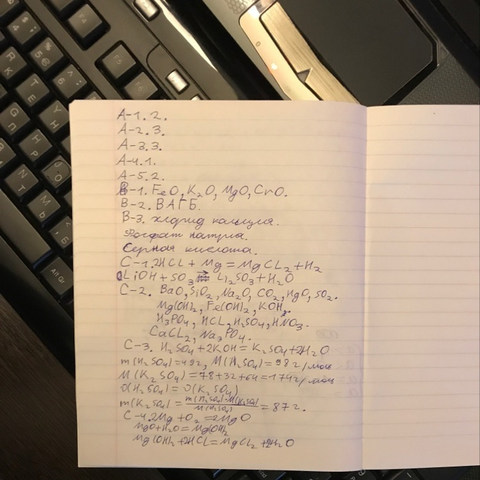 А-1.2.
А-2.3.
А-3.3.
А-4.1.
А-5.2.
В-1. FeO, K2O, MgO, CrO.
В-2. ВАГБ.
В-3. хлорид кальция.
Фосфат натрия.
Серная кислота.
С-1. 2HCL + Mg = MgCL2 + H2
LiOH + SO3 = Li2SO3 + H2O
С-2. BaO, SiO2, Na2O, CO2, HgO, SO2.
Mg(OH)2, Fe(OH)2, KOH,
H3PO4, HCL, H2SO4, HNO3.
CaCL2, Na3PO4.
С-3. H2SO4 + 2KOH = K2SO4 + 2H2O
m(H2SO4) = 49г, M(H2SO4) = 98г/моль
M(K2SO4) = 78+32+64 = 174г/моль
υ(H2SO4) = υ(K2SO4)
m(K2SO4) = m(H2SO4)·M(K2SO4) / M(H2SO4) = 87г.
С-4. 2Mg + O2 = 2MgO
MgO + H2O = Mg(OH)2
Mg(OH)2 + 2HCL = MgCL2 + 2H2O